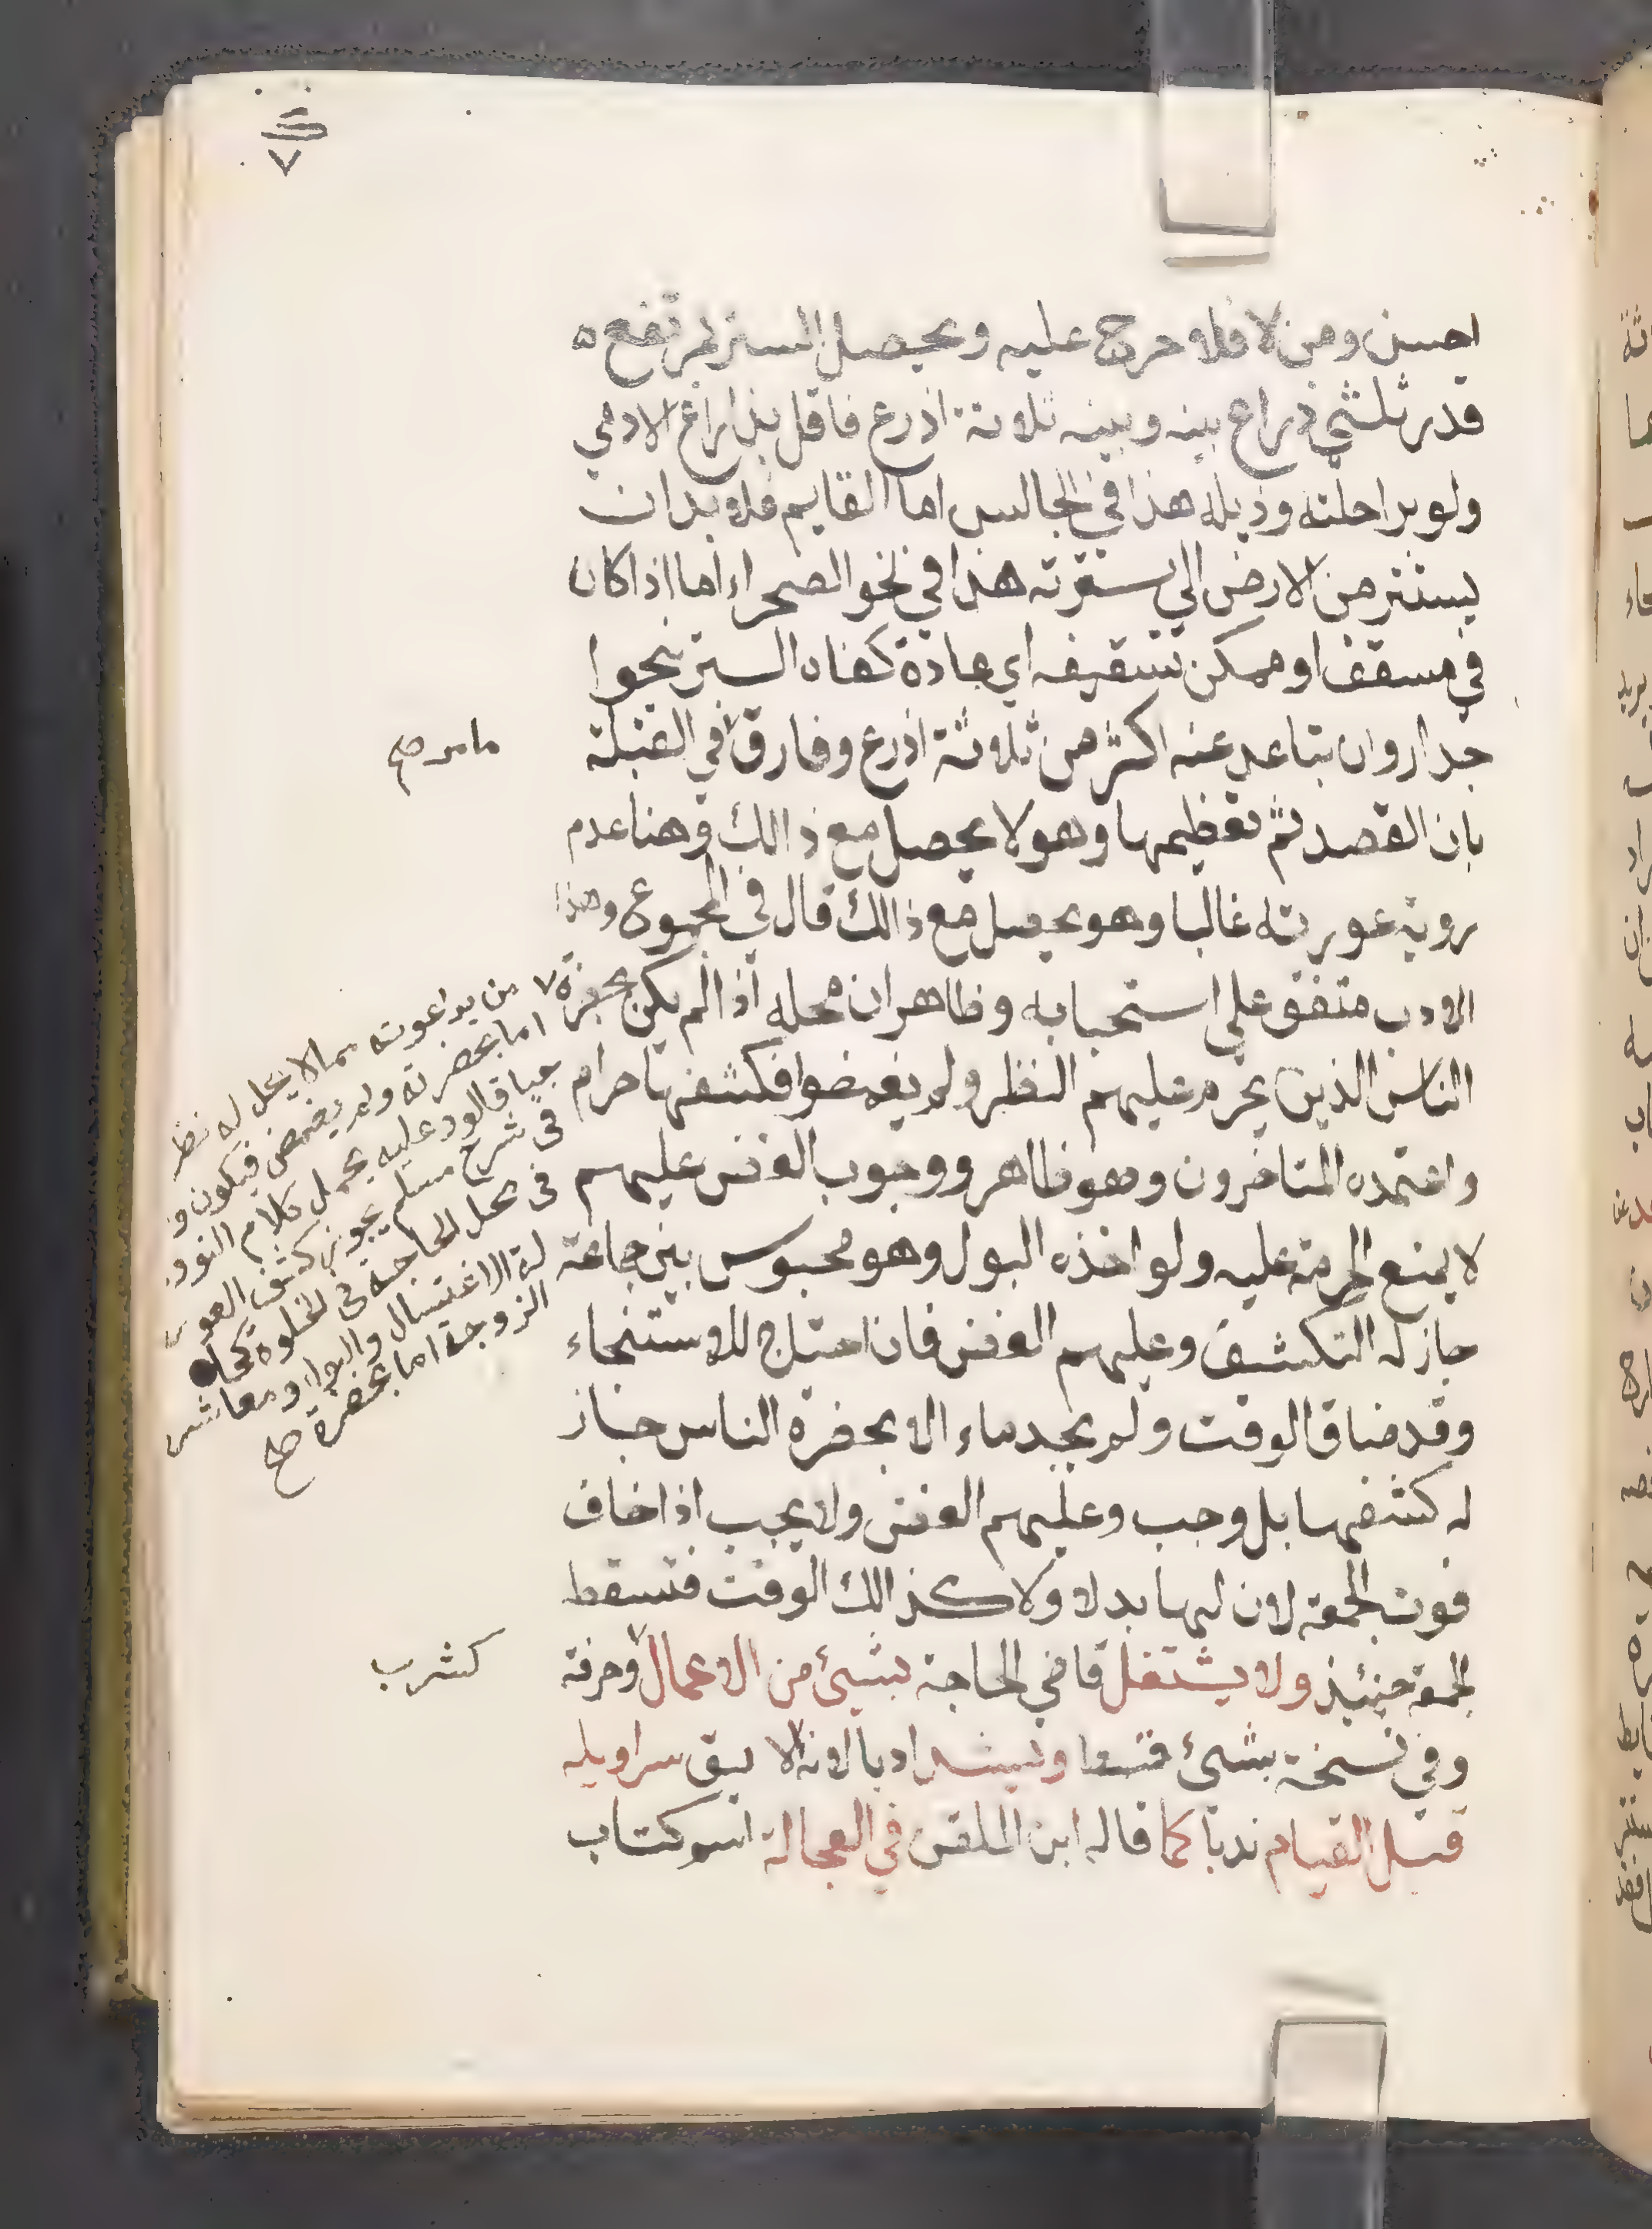 احسن ومن لا فلا حرج عليه ويحصل الستر بمرتفع
قدر ثلثي ذراع بينه وبينه ثلاثة اذرع فاقل بذراع الادمي
ولو براحلته وذيله هذا في الجالس اما القايم فلا بد ان
يستتر من الارض الي سترته هذا في نحو الصحراء اما اذا كان
في مسقف او ممكن تسقيفه اي عادة كفاه الستر بنحوا
جدار وان تباعد عنه اكثر من ثلاثة اذرع وفارق في القبلة
مامر صح
بان القصد ثم تعظيمها وهو لا يحصل مع ذالك وهنا عدم
روية عورته غالبا وهو يحصل مع ذالك قال في المجموع وهذا
الادب متفق علي استحبابه وظاهر ان محله اذا لم يكن بحضرة
الناس الذين يحرم عليهم النظر ولم يغمضوا فكشفها حرام
واعتمده المتاخرون وهو ظاهر ووجوب الغض عليهم
لا يمنع الحرمة عليه ولو اخذه البول وهو محبوس بين جماعة
جاز له التكشف وعليهم الغض فان احتاج للاستنجاء
وقد ضاق الوقت ولم يجد ماء الا بحضرة الناس جاز
له كشفها بل وجب وعليهم الغض ولا يجب اذا خاف
فوت الجمعة لان لها بدلا ولا كذالك الوقت فتسقط
الجمعة حينئذ ولا يشتغل قاضي الحاجة بشيئ من الاعمال وحرفة
كشرب
وفي نسخة بشيئ ادبا لانه لا سراويله
قبل القيام ندبا كما قاله ابن الملقن في العجالة اسم كتاب
من يدا عورته مما لا يحل له نظر
اما بحضرته ولم يغمض فيكون و
جبا قالو وعليه يحمل كلام النوو
في شرح مسلم يجوز كشف العور
في محل الحاجة في الخلوة كحا
لة الاغتسال والبول ومعاشر
الزوجة اما بحضرة صح